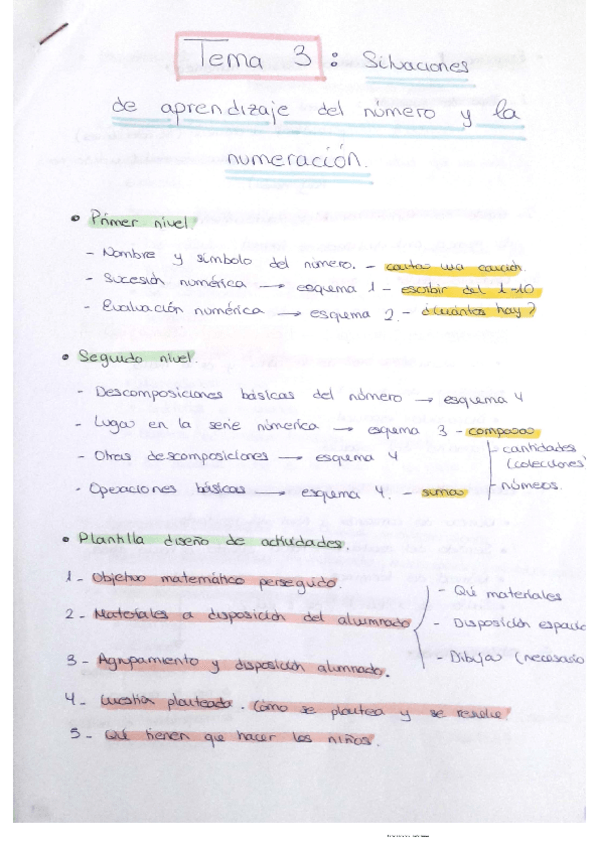 Tema 3 : Situaciones
de aprendizaje del número y la
numeración.
• Primer nivel
- Nombre y símbolo del número. - cantar una canción
- Sucesión numérica → esquema 1 - escribir del 1-10
- Evaluación numérica → esquema 2. - ¿cuántos hay?
• Segundo nivel.
- Descomposiciones básicas del número → esquema 4
- Lugar en la serie númerica → esquema 3 - comparar
- cantidades
(colecciones)
- números.
- Otras descomposiciones → esquema 4
- Operaciones básicas → esquema 4. - sumar
• Plantilla diseño de actividades.
1 - Objetivo matemático perseguido
2 - Materiales a disposición del alumnado
- Qué materiales
- Disposición espacio
- Dibujar (necesario
3 - Agrupamiento y disposición alumnado.
4 - Cuestión planteada. Cómo se plantea y se resuelve
5 - Qué tienen que hacer los niños.